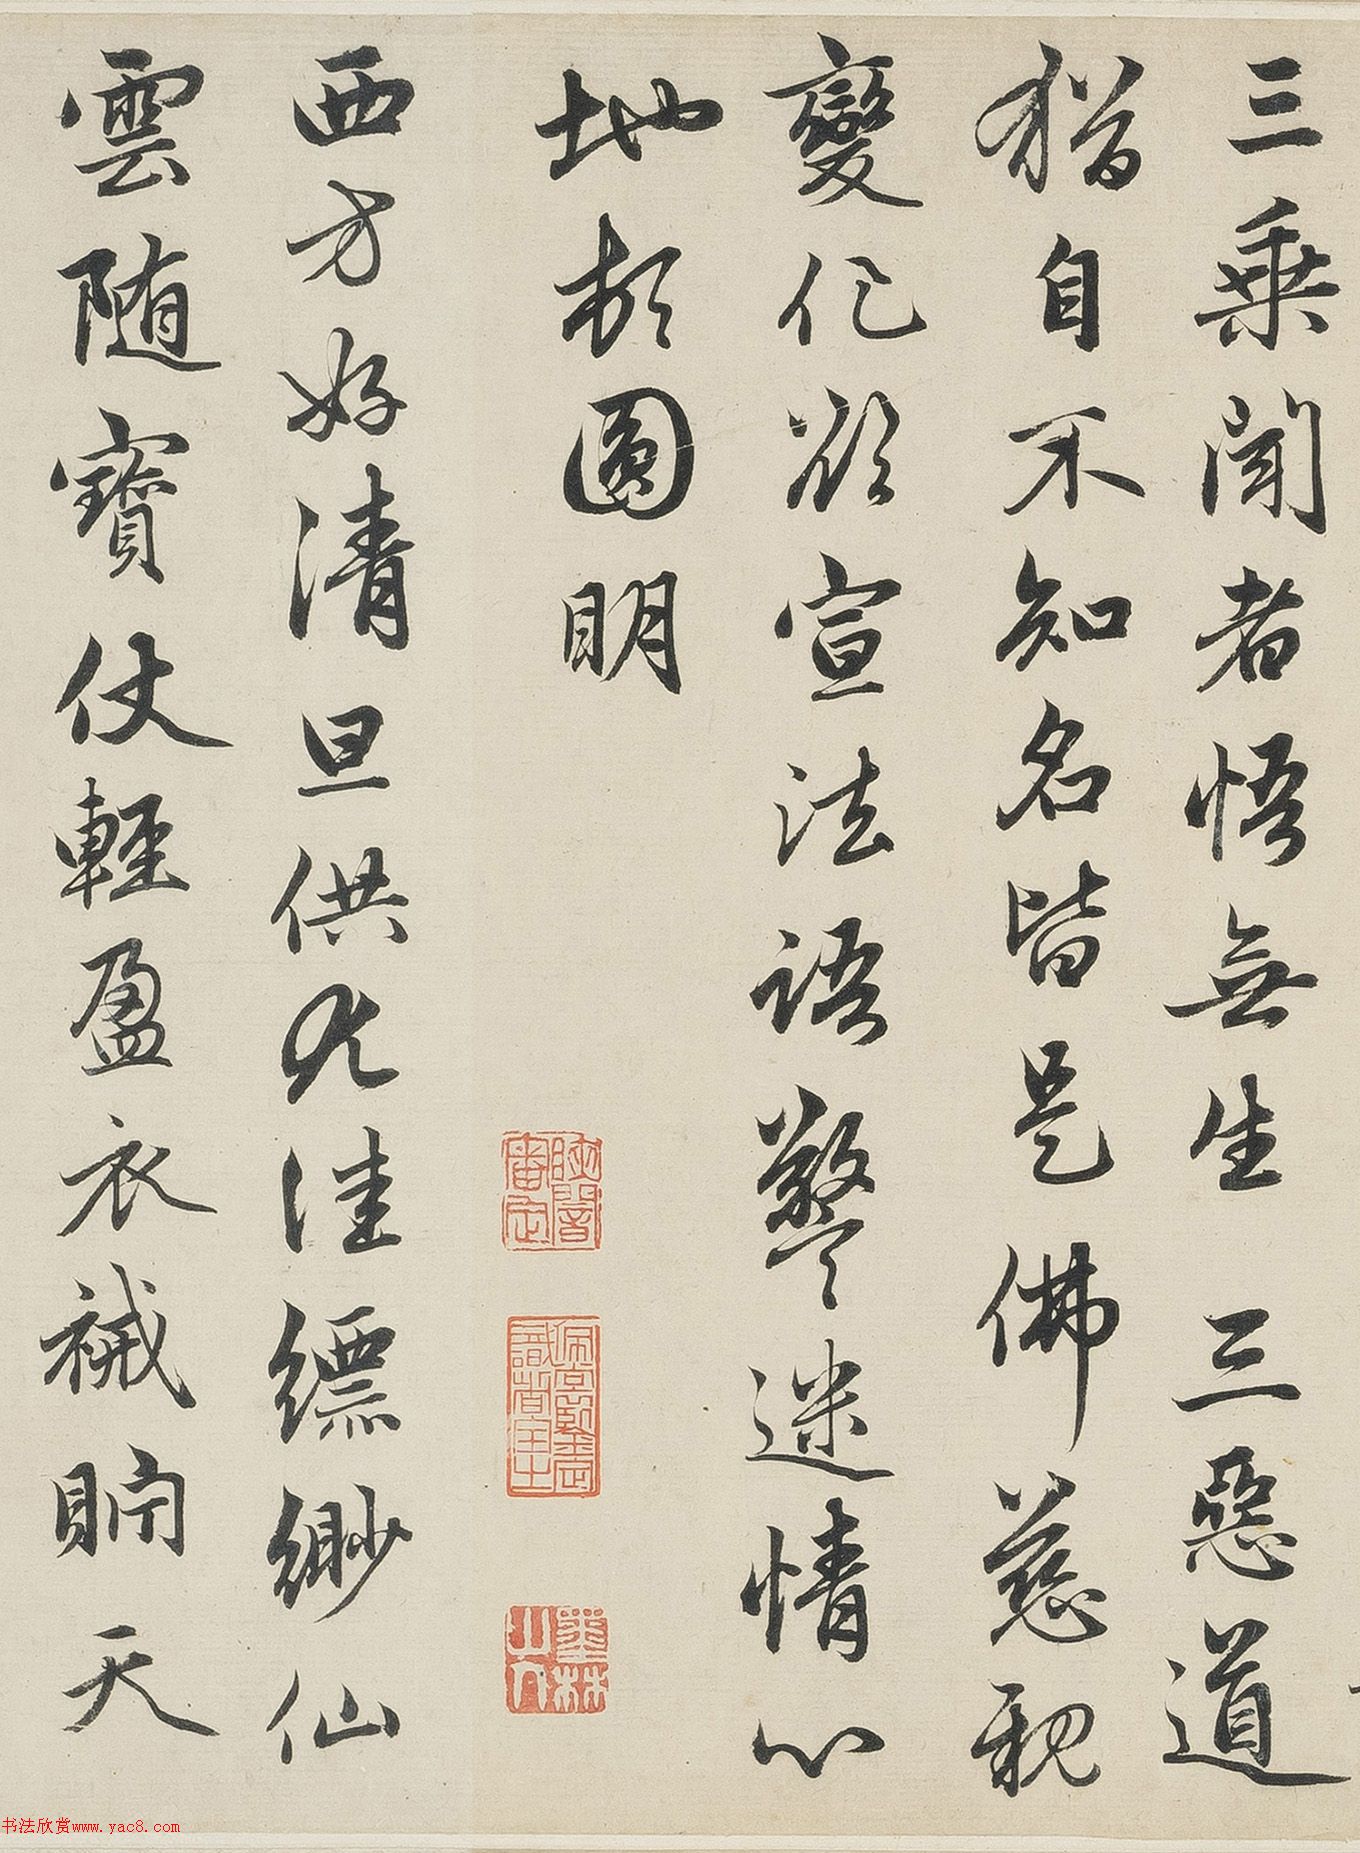 三乗聞者悟無生三惡道
猶自不知名皆是佛慈親
變化欲宣法語警迷情心
地頓圓明
墨林山人
西方好清旦供尤佳縹緲仙
雲随寶仗輕盈衣裓貯天
书法欣赏www.yac8.com